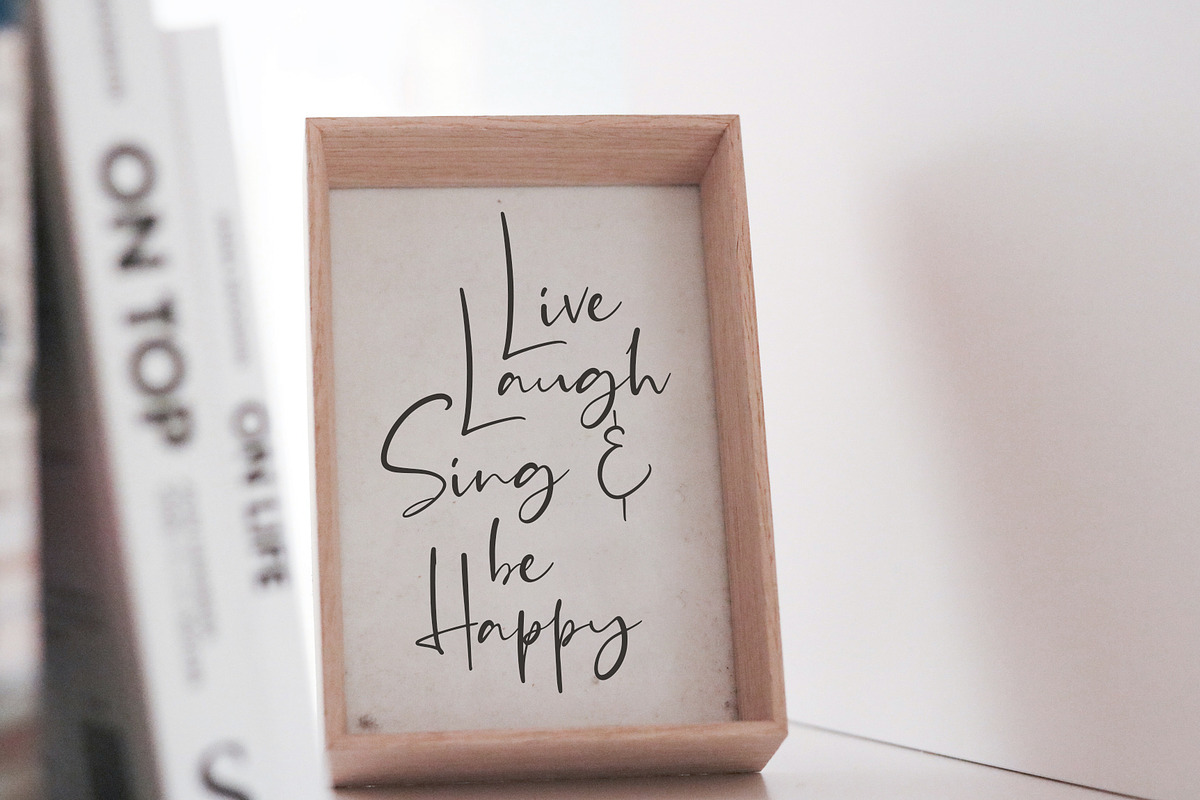 ON TOP
ON LIFE
Live
Laugh
Sing &
be
Happy